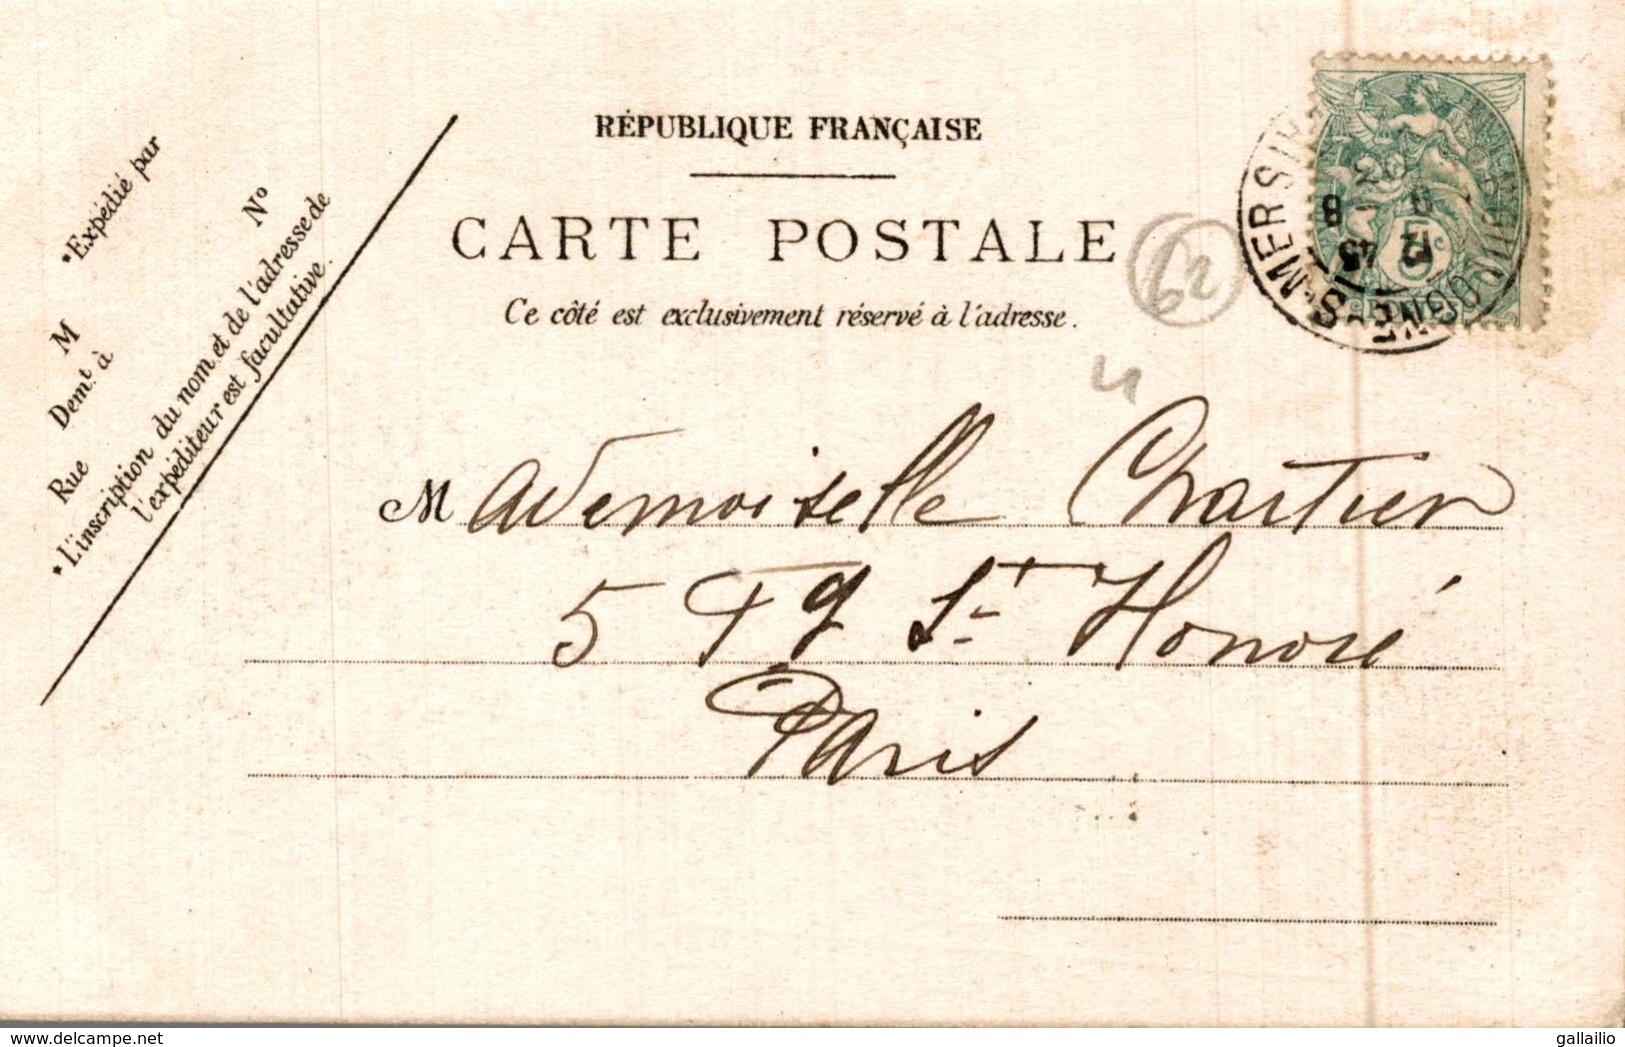 RÉPUBLIQUE FRANÇAISE
CARTE POSTALE
Ce côté est exclusivement réservé à l'adresse.
*Expédié par
M
Demt. à
Rue
No
*L'inscription du nom et de l'adresse de
l'expéditeur est facultative.
62
4
Mademoiselle Chartier
5 St Honoré
Paris
www.delcampe.net
gallailio